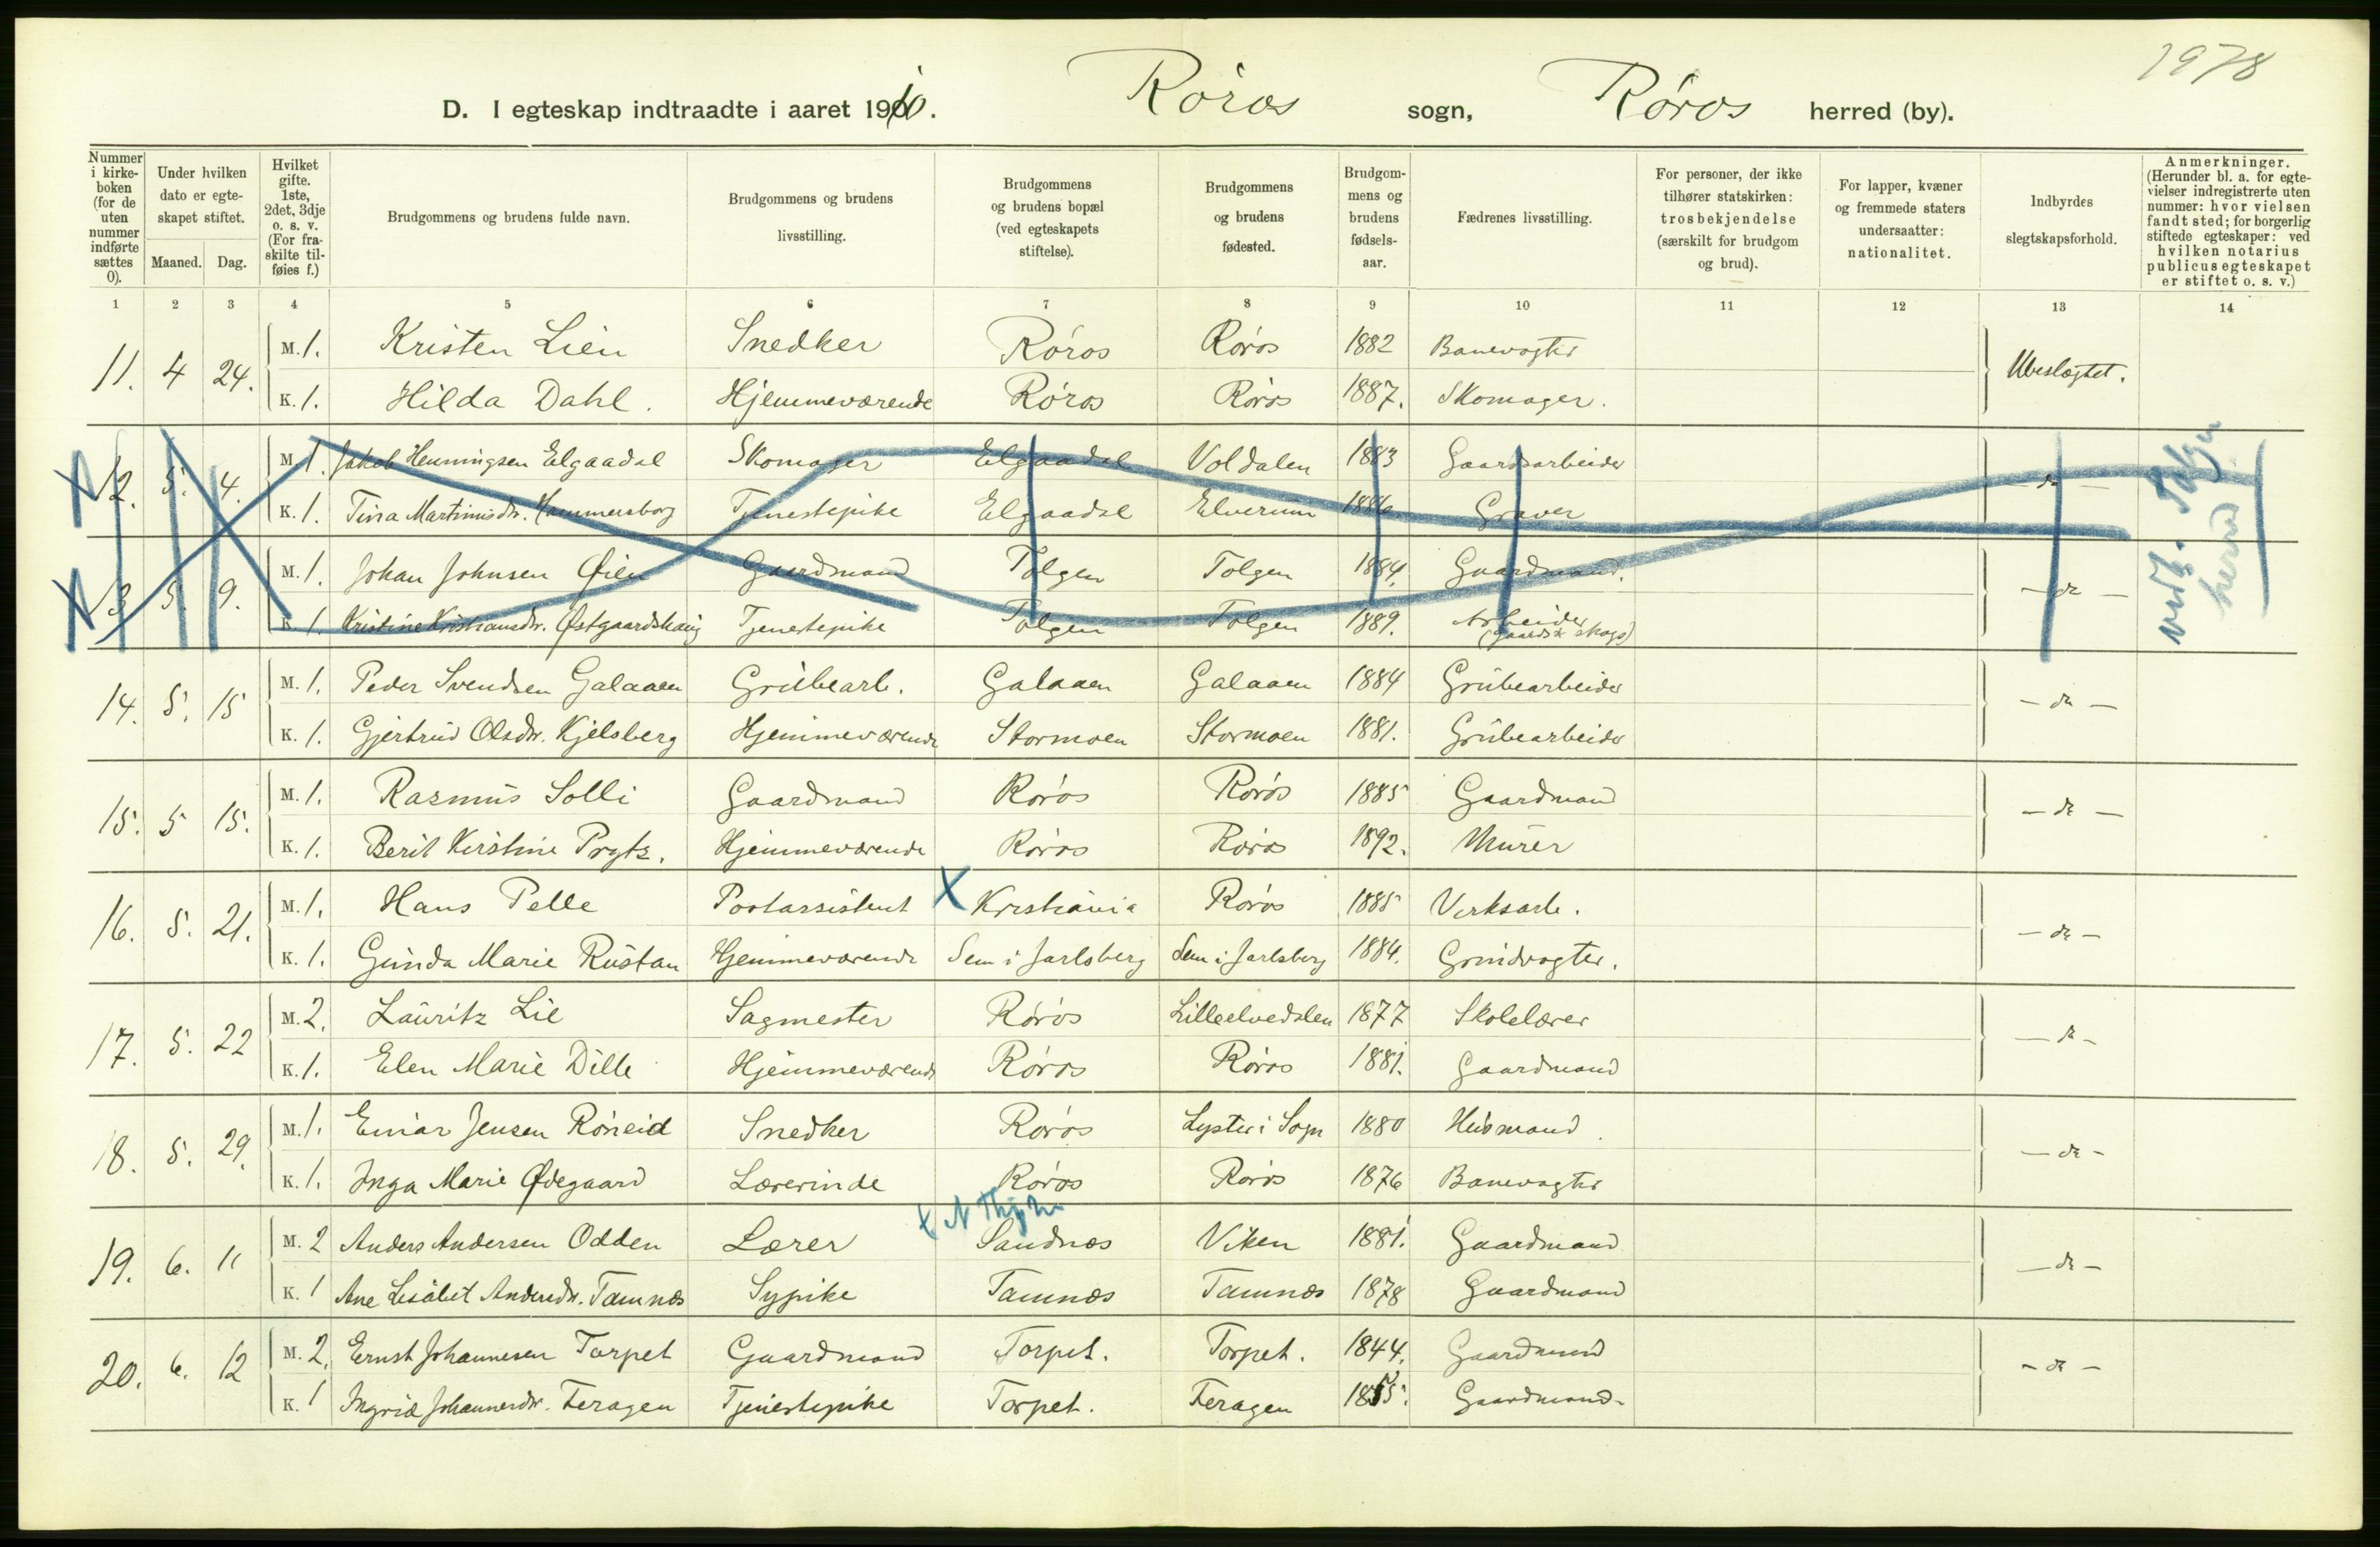 1978
D. I egteskap indtraadte i aaret 1910. Røros sogn, Røros herred (by).
Nummer i kirke-boken (for de uten nummer indførte sættes 0). Under hvilken dato er egte-skapet stiftet. Maaned. Dag. Hvilket gifte. 1ste, 2det, 3dje o. s. v. (For fra-skilte til-føies f.) Brudgommens og brudens fulde navn. Brudgommens og brudens livsstilling. Brudgommens og brudens bopæl (ved egteskapets stiftelse). Brudgommens og brudens fødested. Brudgom-mens og brudens fødsels-aar. Fædrenes livsstilling. For personer, der ikke tilhører statskirken: trosbekjendelse (særskilt for brudgom og brud). For lapper, kvæner og fremmede staters undersaatter: nationalitet. Indbyrdes slegtskapsforhold. Anmerkninger. (Herunder bl. a. for egte-vielser indregistrerte uten nummer: hvor vielsen fandt sted; for borgerlig stiftede egteskaper: ved hvilken notarius publicus egteskapet er stiftet o. s. v.)
1 2 3 4 5 6 7 8 9 10 11 12 13 14
11. 4 24. M. 1. Kristen Lien Snedker Røros Røros 1882 Banevogter Ubeslægtet.
K. 1. Hilda Dahl. Hjemmeværende Røros Røros 1887. Skomager.
12. 5. 4. M. 1. Jakob Henningsen Elgaadal Skomager Elgaadal Voldalen 1883 Gaardsarbeider — do —
K. 1. Tina Martinusdr. Hammersborg Tjenestepike Elgaadal Elverum 1886. Graver
13 5. 9. M. 1. Johan Johnsen Øien Gaardmand Tolgen Tolgen 1884. Gaardmand. — do —
K. 1. Kristine Kristiansdr. Østgaardshaug Tjenestepike Tolgen Tolgen 1889. Arbeider (gaards & skogs)
vedk. Tolgen herred
14. 5. 15 M. 1. Peder Svendsen Galaaen Grubearb. Galaaen Galaaen 1884 Grubearbeider — do —
K. 1. Gjertrud Olsdr. Kjelsberg Hjemmeværende Stormoen Stormoen 1881. Grubearbeider
15. 5 15. M. 1. Rasmus Solli Gaardmand Røros Røros 1885 Gaardmand — do —
K. 1. Berit Kirstine Prytz. Hjemmeværende Røros Røros 1892. Murer
16. 5. 21. M. 1. Hans Pelle Postassistent X Kristiania Røros 1885 Verksarb. — do —
K. 1. Gunda Marie Rustan Hjemmeværende Sem i Jarlsberg Sem i Jarlsberg 1884. Grindvogter.
17. 5. 22 M. 2. Lauritz Lie Sagmester Røros Lilleelvedalen 1877 Skolelærer — do —
K. 1. Elen Marie Dille Hjemmeværende Røros Røros 1881. Gaardmand
18. 5. 29. M. 1. Einar Jensen Røneid Snedker Røros Lyster i Sogn 1880 Husmand. — do —
K. 1. Inga Marie Ødegaard Lærerinde Røros Røros 1876 Banevogter
19. 6. 11 M. 2 Anders Andersen Odden Lærer Sandnæs Viken 1881. Gaardmand — do —
K. 1 Ane Lisabet Andersdr. Tamnæs Sypike Tamnæs Tamnæs 1878 Gaardmand
20. 6. 12 M. 2. Ernst Johannesen Torpet Gaardmand Torpet. Torpet. 1844. Gaardmand — do —
K. 1 Ingrid Johannesdr. Feragen Tjenestepike Torpet. Feragen 1855. Gaardmand